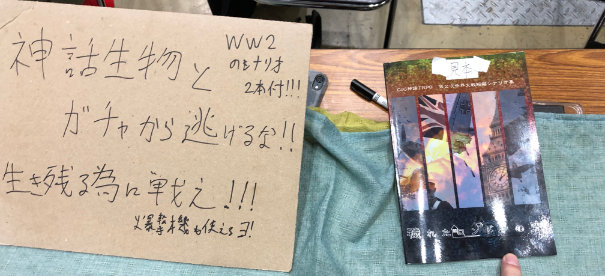 神話生物と
WW2
のシナリオ
2本付!!!
ガチャから逃げるな!!
生き残る為に戦え!!!
爆撃機も使えるヨ!
見本
CoC神話TRPG 第2次世界大戦短編シナリオ集